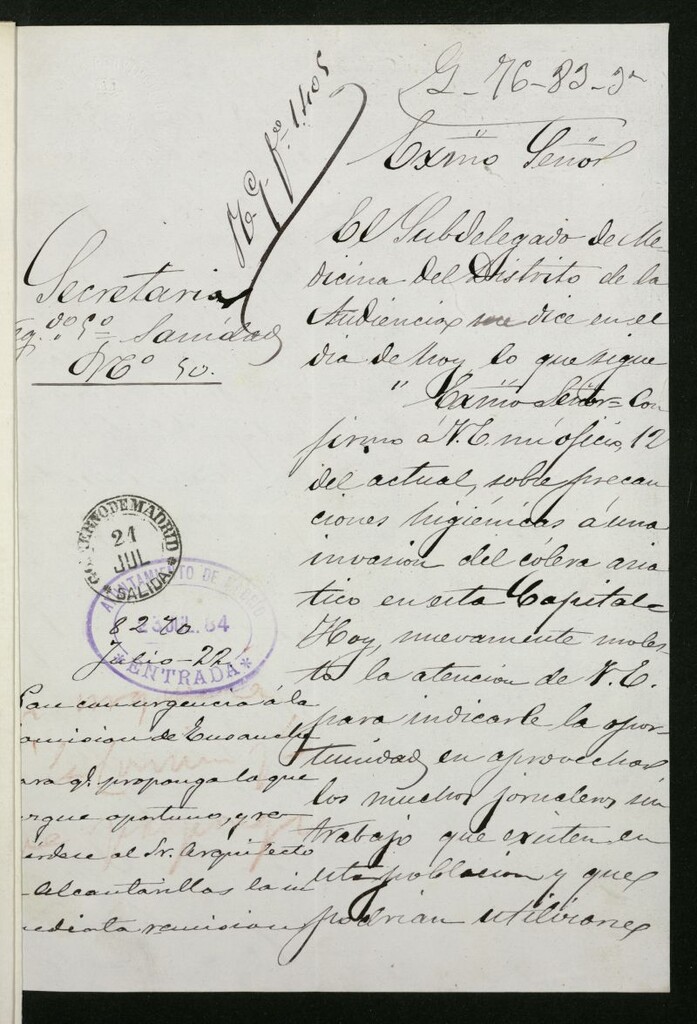 G-76-83-3ª
Rº Gº fº 1.405
Exmo Señor
Secretaria
Neg.do 5º Sanidad
Nº 50.
El Subdelegado de Me
dicina del Distrito de la
Audiencia me dice en el
dia de hoy lo que sigue
"Exmo Señor= Con
firmo á V.E. mi oficio, 12
del actual, sobre precau
ciones higiénicas á una
invasion del cólera asia
tico en esta Capital=
Hoy, nuevamente moles
to la atencion de V.E.
para indicarle la opor
tunidad en aprovechar
los muchos jornaleros sin
trabajo que existen en
esta poblacion y que
podrian utilizarse
GOBIERNO DE MADRID
21
JUL
SALIDA
AYUNTAMIENTO DE MADRID
23 JUL. 84
*ENTRADA*
8270
Julio-22
Pan con urgencia á la
omision de Ensanche
ara q.e proponga lo que
zgue oportuno, y re-
érdese al Sr. Arquitecto
Alcantarillas la in
mediata remision